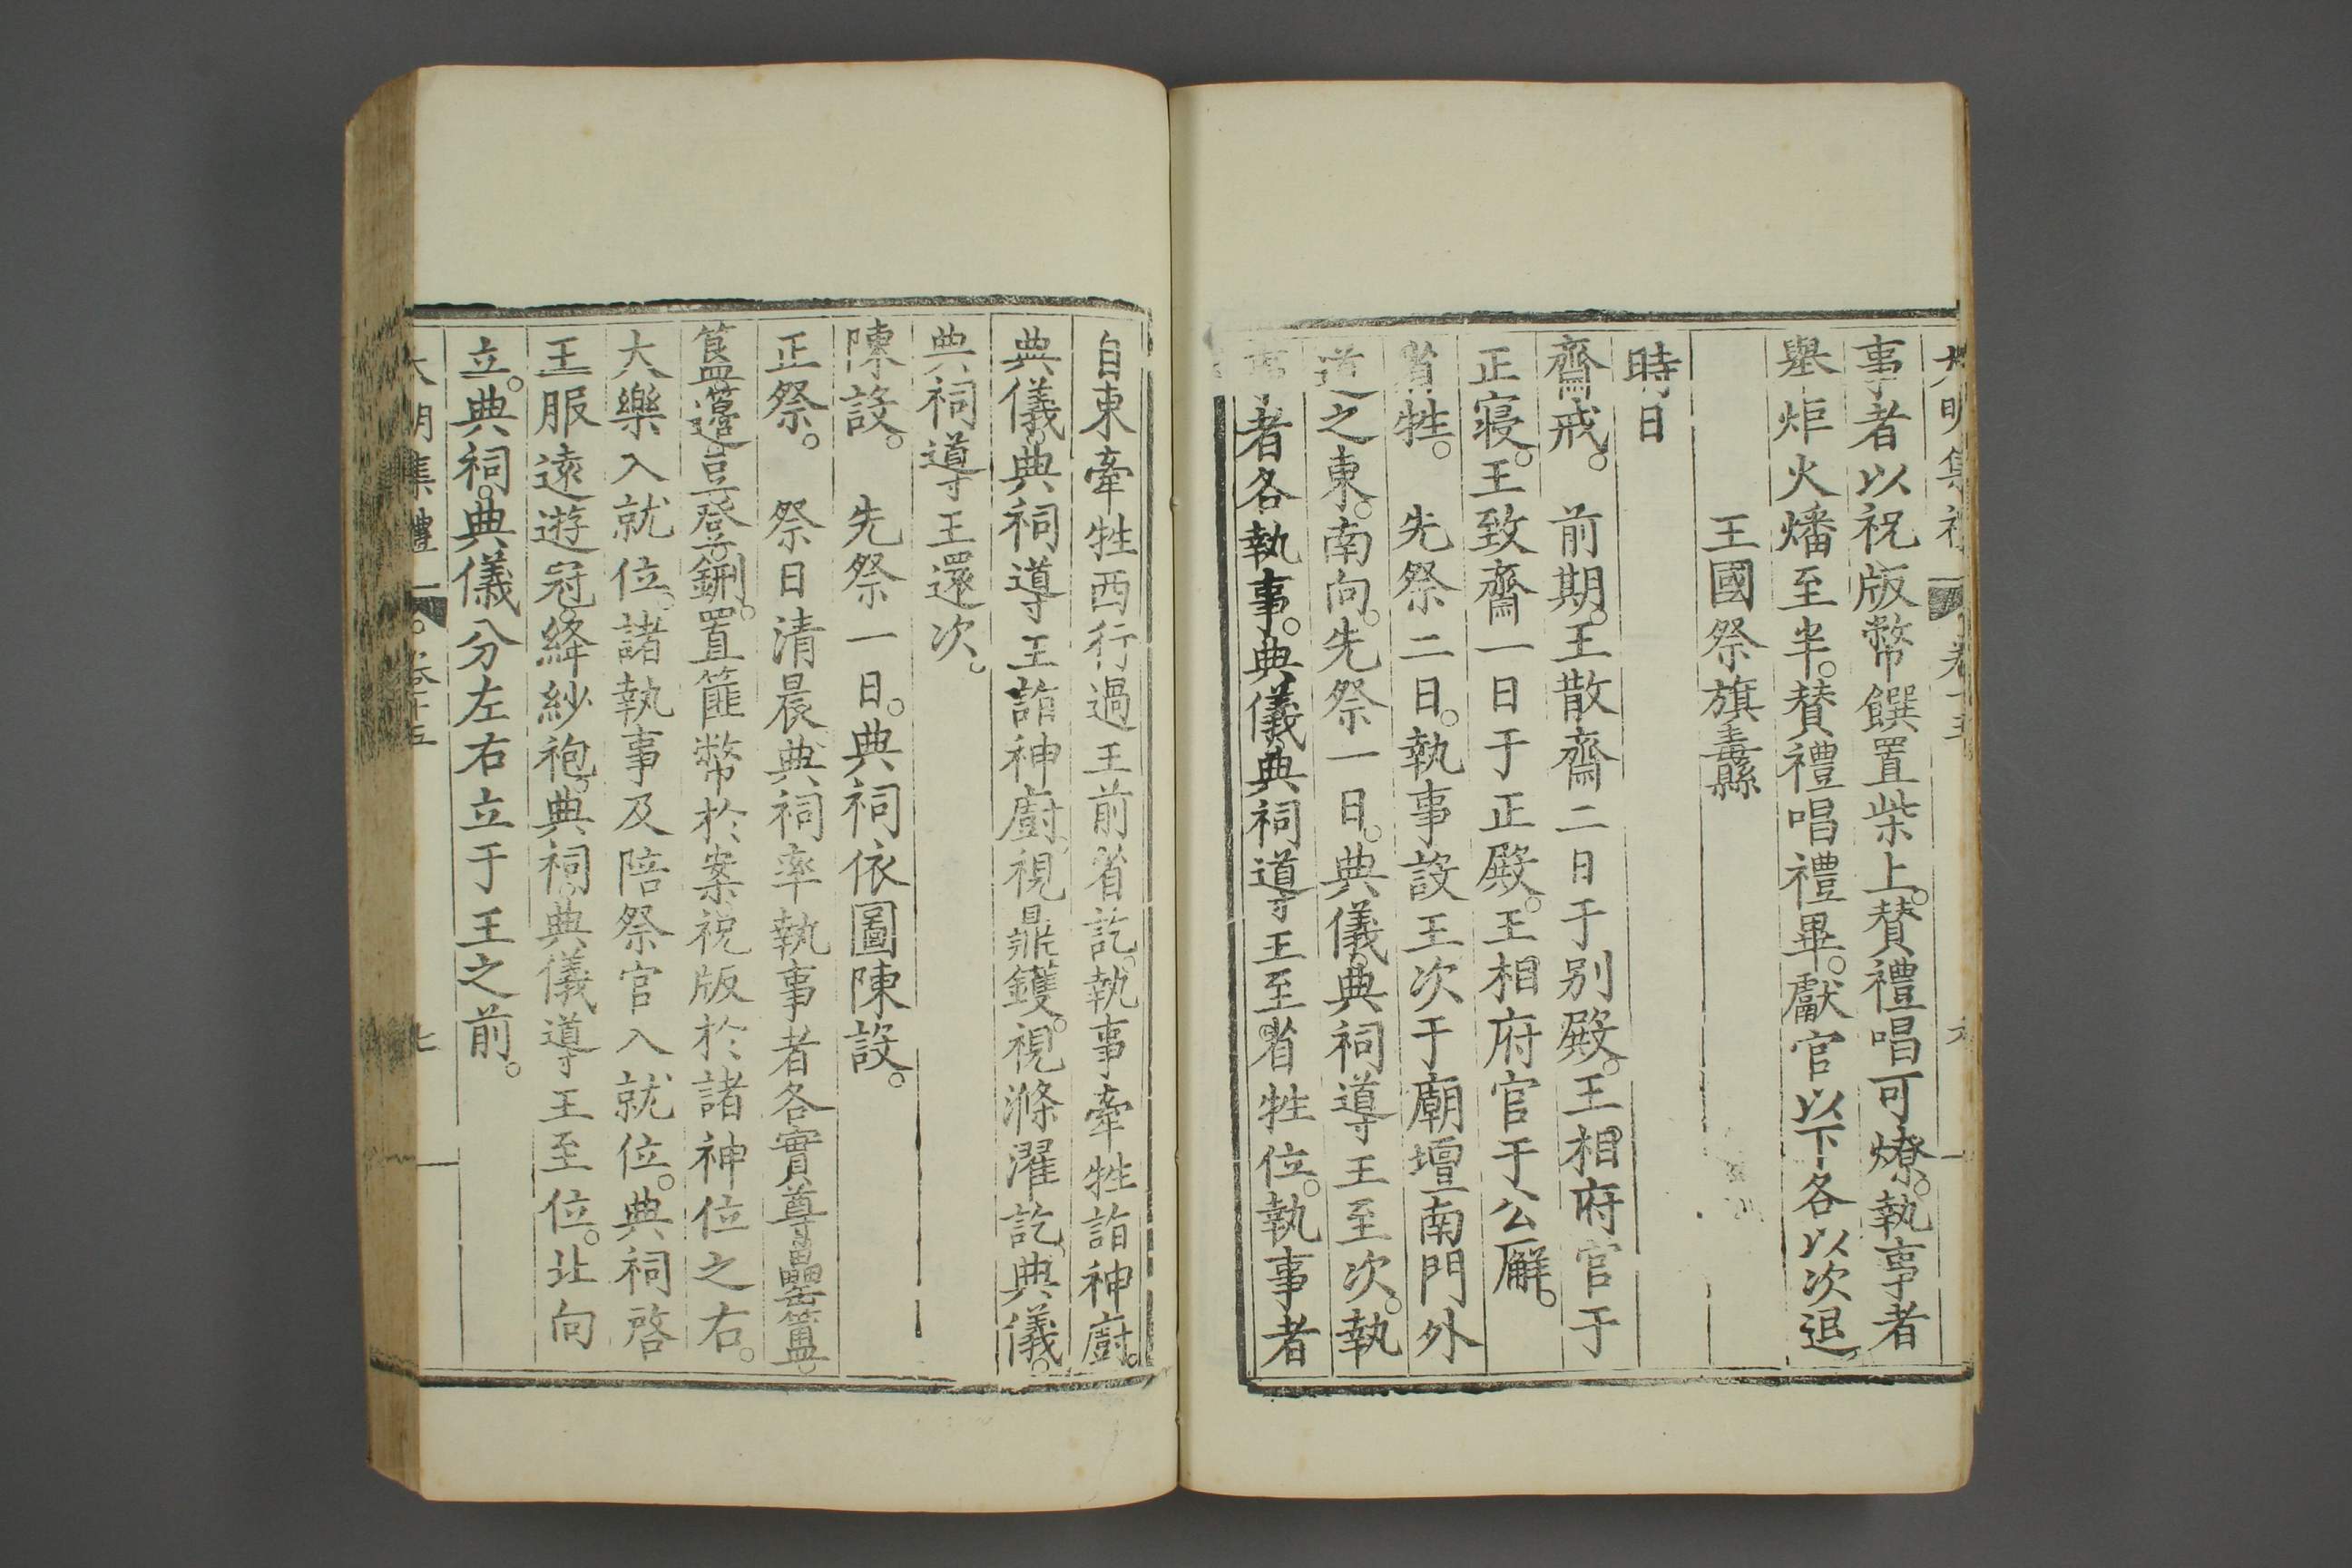 大明集禮 卷十五
事者以祝版幣饌置柴上。贊禮唱可燎。執事者
舉炬火燔至半。贊禮唱禮畢。獻官以下各以次退。
王國祭旗纛
時日
齋戒。 前期。王散齋二日于别殿。王相府官于
正寝。王致齋一日于正殿。王相府官于公廨。
省牲。 先祭二日。執事設王次于廟壇南門外
道之東。南向。先祭一日。典儀。典祠導王至次。執
事者各執事。典儀典祠導王至省牲位。執事者
自東牽牲西行過王前省訖。執事牽牲詣神廚。
典儀。典祠導王詣神廚。視鼎鑊。視滌濯訖。典儀。
典祠導王還次。
陳設。 先祭一日。典祠依圖陳設。
正祭。 祭日清晨典祠率執事者各實尊罍簠。
簋。籩。豆。登。鉶。置篚幣於案祝版於諸神位之右。
大樂入就位。諸執事及陪祭官入就位。典祠啓
王服遠遊冠。絳紗袍。典祠。典儀導王至位。北向
立。典祠。典儀分左右立于王之前。
大明集禮 卷十五 七